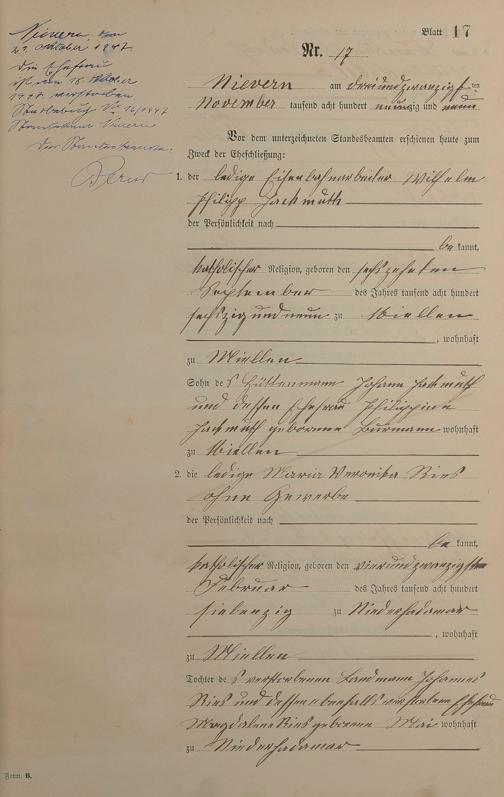 Nievern, den
21. Oktober 1947
Die Ehefrau
ist am 18. Oktober
1947 verstorben
Sterbebuch Nr. 16/1947
Standesamt Nievern
Der Standesbeamte.
Blatt 17
Nr. 17
Nievern am dreiundzwanzigsten
November tausend acht hundert neunzig und neun
Vor dem unterzeichneten Standesbeamten erschienen heute zum
Zweck der Eheschließung:
1. der ledige Eisenbahnarbeiter Wilhelm
Philipp Jackmuth
der Persönlichkeit nach
be kannt,
katholischer Religion, geboren den sechszehnten
September des Jahres tausend acht hundert
sechszig und neun zu Miellen
, wohnhaft
zu Miellen
Sohn des Hüttenmann Johann Jackmuth
und dessen Ehefrau Philippine
Jackmuth geborene Burmann wohnhaft
zu Miellen
2. die ledige Maria Veronika Ries
ohne Gewerbe
der Persönlichkeit nach
be kannt,
katholischer Religion, geboren den vierundzwanzigsten
Februar des Jahres tausend acht hundert
siebenzig zu Niederhadamar
, wohnhaft
zu Miellen
Tochter des verstorbenen Landmann Johannes
Ries und dessen ebenfalls verstorbene Ehefrau
Magdalena Ries geborene Mai wohnhaft
zu Niederhadamar
Form. B.